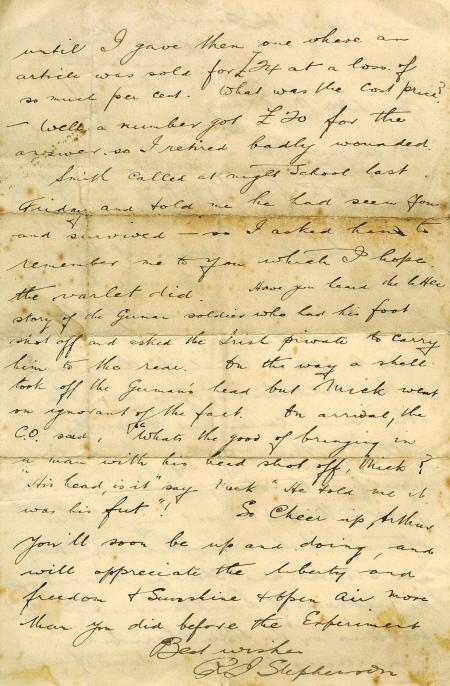 until I gave them one where an
article was sold for £24 at a loss of
so much per cent. What was the Cost price?
— Well a number got £70 for the
answer. so I retired badly wounded.
Smith called at night School last
Friday and told me he had seen you
and survived — so I asked him to
remember me to you which I hope
the varlet did. Have you heard the little
story of the German soldier who had his foot
shot off and asked the Irish private to carry
him to the rear. On the way a shell
took off the German's head but Mick went
on ignorant of the fact. On arrival, the
C.O. said, "Whats the good of bringing in
a man with his head shot off, Mick?
"His head, is it" say Mick "He told me it
was his fut"! So Cheer up, Arthur
You'll soon be up and doing, and
will appreciate the liberty and
freedom & Sunshine & open air more
than you did before the Experiment
Best wishes
R J Stephenson